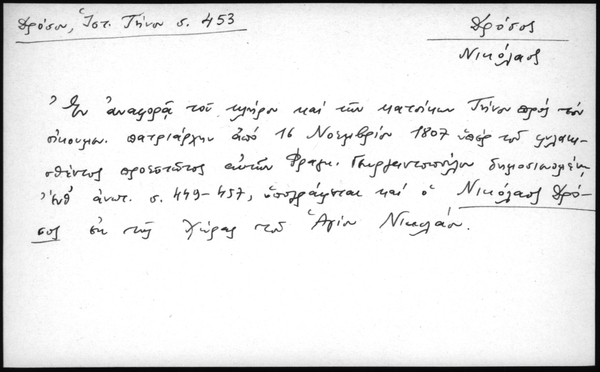 Δρόσου, Ἱστ. Τήνου σ. 453
Δρόσος
Νικόλαος
Ἐν ἀναφορᾷ τοῦ κλήρου καὶ τῶν κατοίκων Τήνου πρὸς τὸν
οἰκουμ. πατριάρχην ἀπὸ 16 Νοεμβρίου 1807 ὑπὲρ τοῦ φυλακι-
σθέντος προεστῶτος αὐτῶν Φραγκ. δημοσιευομένῃ
ἔνθ' ἀνωτ. σ. 449-457, ὑπογράφεται καὶ ὁ Νικόλαος Δρό-
σος ἐκ τῆς Χώρας τοῦ Ἁγίου Νικολάου.